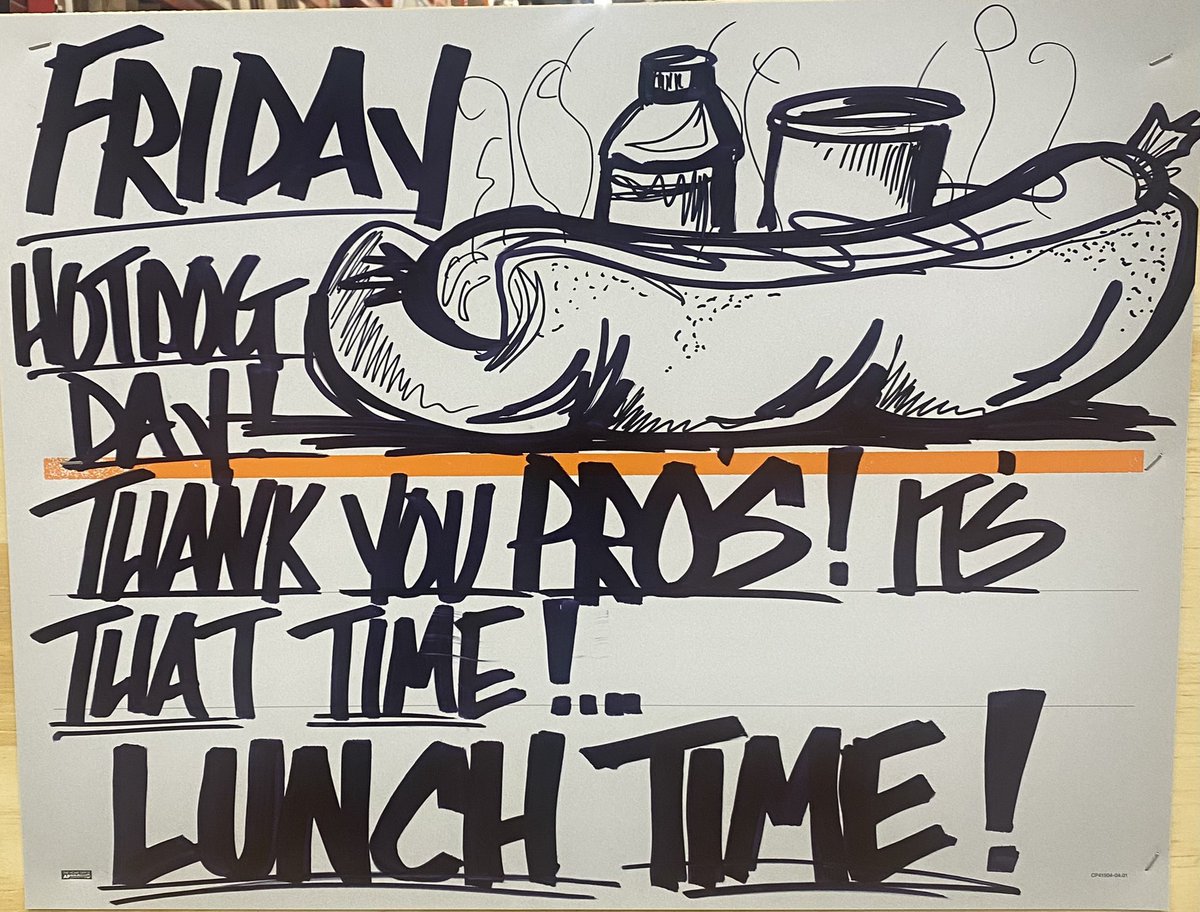 FRIDAY
HOTDOG
DAY!
THANK YOU PRO'S! IT'S
THAT TIME!...
LUNCH TIME!